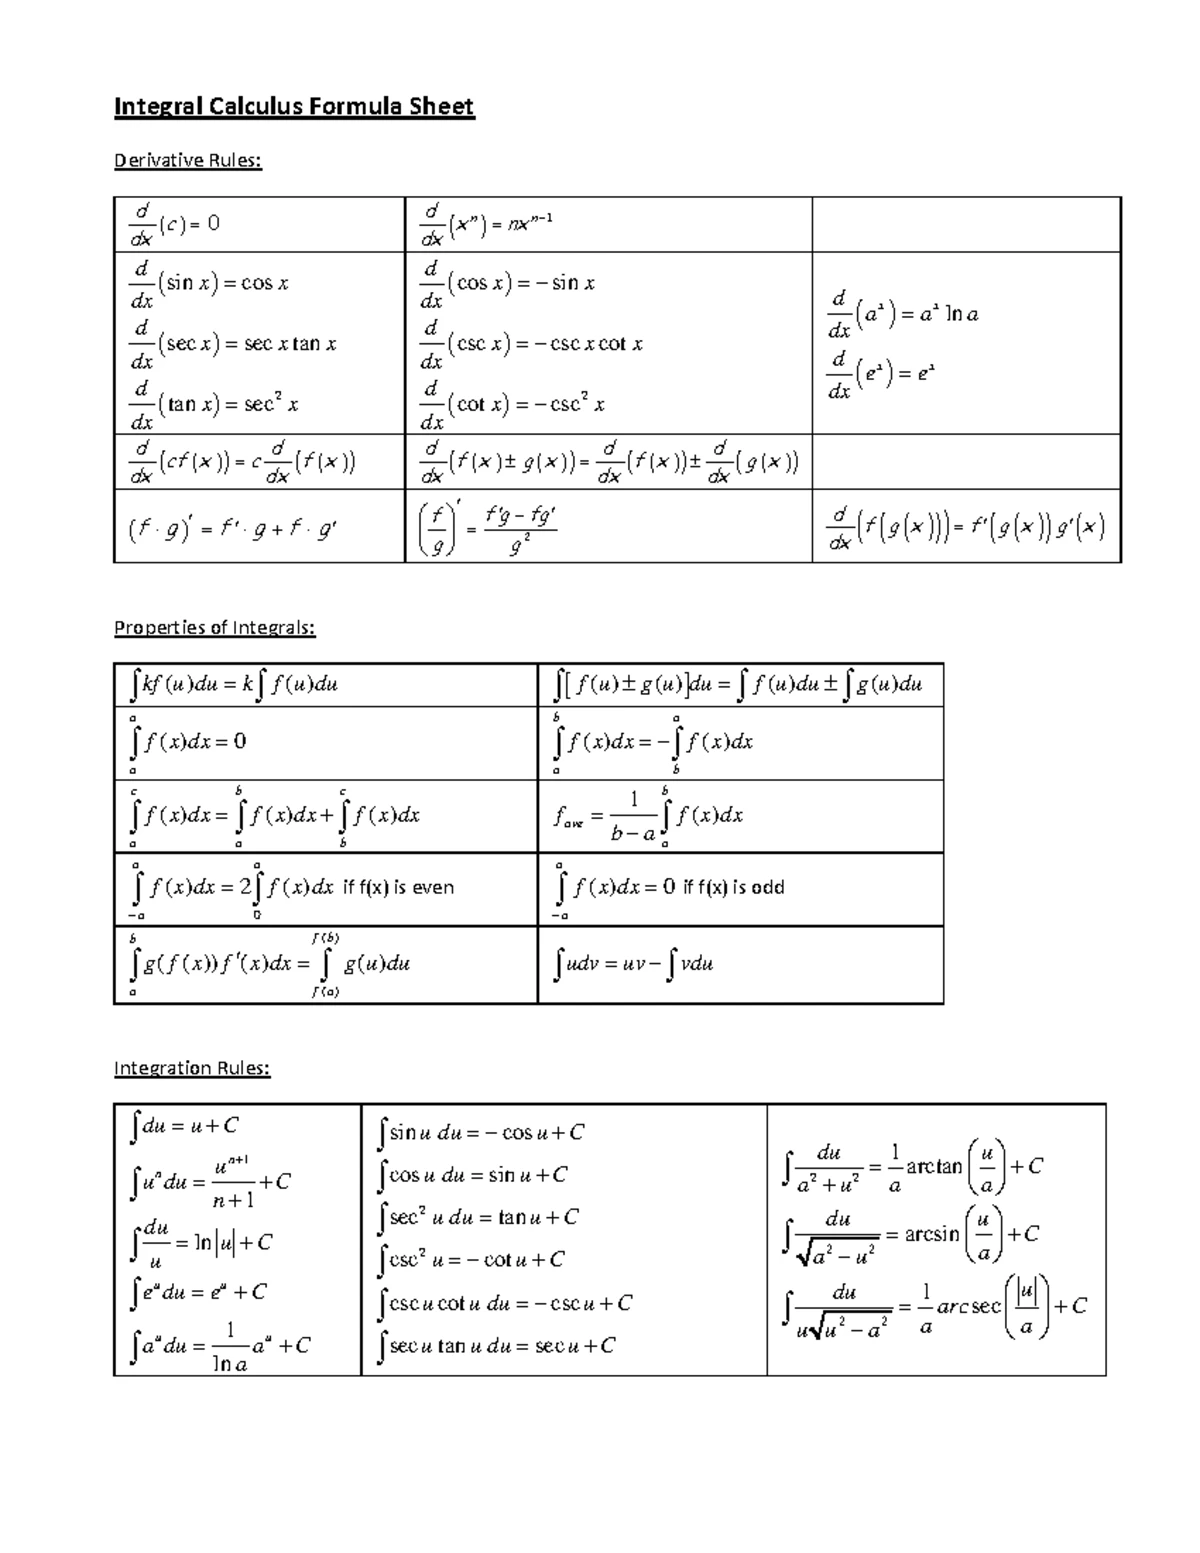 Integral Calculus Formula Sheet
Derivative Rules:
d/dx (c) = 0
d/dx (xⁿ) = nxⁿ⁻¹
d/dx (sin x) = cos x
d/dx (sec x) = sec x tan x
d/dx (tan x) = sec² x
d/dx (cos x) = − sin x
d/dx (csc x) = − csc x cot x
d/dx (cot x) = − csc² x
d/dx (aˣ) = aˣ ln a
d/dx (eˣ) = eˣ
d/dx (cf(x)) = c d/dx (f(x))
d/dx (f(x) ± g(x)) = d/dx (f(x)) ± d/dx (g(x))
(f · g)′ = f′ · g + f · g′
(f/g)′ = (f′g − fg′)/g²
d/dx (f(g(x))) = f′(g(x)) g′(x)
Properties of Integrals:
∫kf(u)du = k∫f(u)du
∫[f(u) ± g(u)]du = ∫f(u)du ± ∫g(u)du
∫ₐᵃ f(x)dx = 0
∫_a^b f(x)dx = −∫_b^a f(x)dx
∫_a^c f(x)dx = ∫_a^b f(x)dx + ∫_b^c f(x)dx
f_ave = 1/(b − a) ∫_a^b f(x)dx
∫_{−a}^a f(x)dx = 2∫_0^a f(x)dx if f(x) is even
∫_{−a}^a f(x)dx = 0 if f(x) is odd
∫_a^b g(f(x))f′(x)dx = ∫_{f(a)}^{f(b)} g(u)du
∫udv = uv − ∫vdu
Integration Rules:
∫du = u + C
∫uⁿdu = uⁿ⁺¹/(n + 1) + C
∫du/u = ln|u| + C
∫eᵘdu = eᵘ + C
∫aᵘdu = (1/ln a) aᵘ + C
∫sin u du = − cos u + C
∫cos u du = sin u + C
∫sec² u du = tan u + C
∫csc² u = − cot u + C
∫csc u cot u du = − csc u + C
∫sec u tan u du = sec u + C
∫du/(a² + u²) = (1/a) arctan(u/a) + C
∫du/√(a² − u²) = arcsin(u/a) + C
∫du/(u√(u² − a²)) = (1/a) arcsec(|u|/a) + C